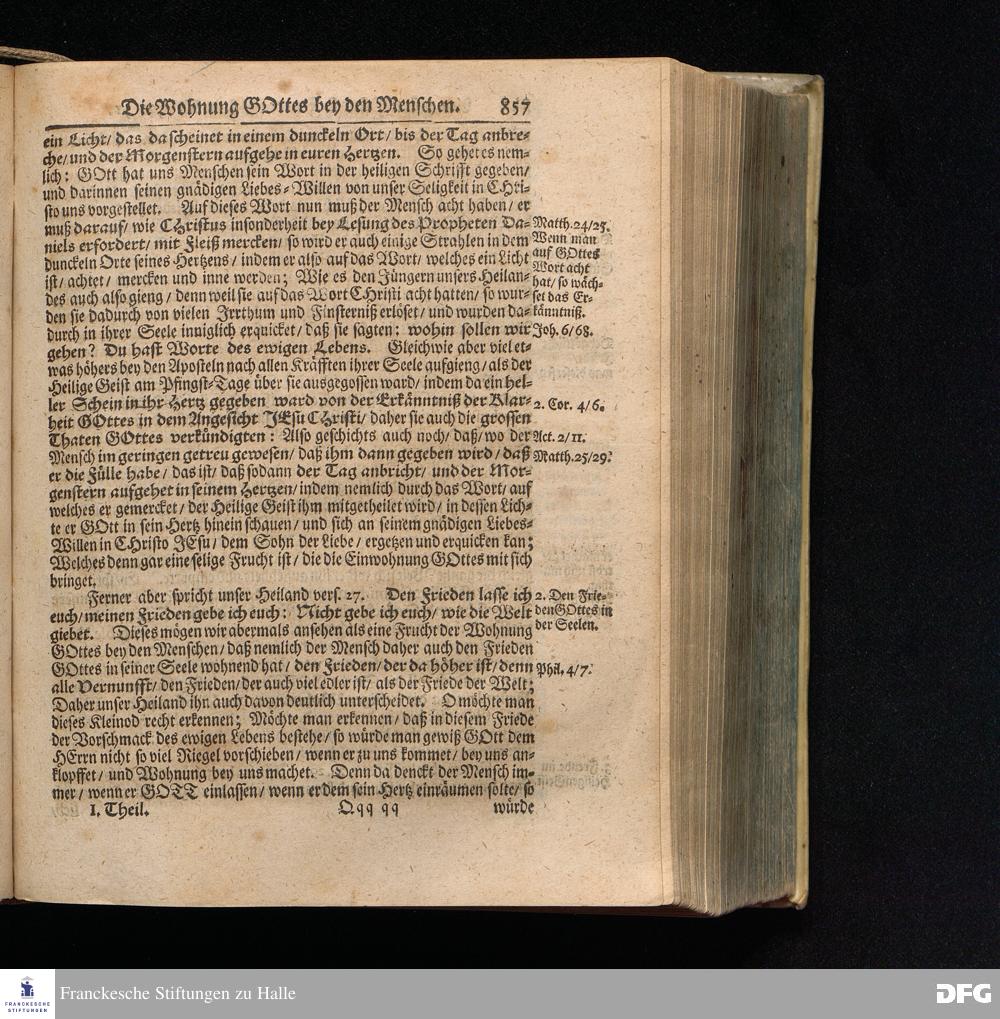 Die Wohnung GOttes bey den Menschen. 857
ein Licht/ das da scheinet in einem dunckeln Ort/ bis der Tag anbre-
che/ und der Morgenstern aufgehe in euren Hertzen. So gehet es nem-
lich: GOtt hat uns Menschen sein Wort in der heiligen Schrifft gegeben/
und darinnen seinen gnädigen Liebes-Willen von unser Seligkeit in CHri-
sto uns vorgestellet. Auf dieses Wort nun muß der Mensch acht haben/ er
muß darauf/ wie CHristus insonderheit bey Lesung des Propheten Da-
niels erfordert/ mit Fleiß mercken/ so wird er auch einige Strahlen in dem
dunckeln Orte seines Hertzens/ indem er also auf das Wort/ welches ein Licht
ist/ achtet/ mercken und inne werden; Wie es den Jüngern unsers Heilan-
des auch also gieng/ denn weil sie auf das Wort CHristi acht hatten/ so wur-
den sie dadurch von vielen Irrthum und Finsterniß erlöset/ und wurden da-
durch in ihrer Seele inniglich erquicket/ daß sie sagten: wohin sollen wir
gehen? Du hast Worte des ewigen Lebens. Gleichwie aber viel et-
was höhers bey den Aposteln nach allen Kräfften ihrer Seele aufgieng/ als der
Heilige Geist am Pfingst-Tage über sie ausgegossen ward/ indem da ein hel-
ler Schein in ihr Hertz gegeben ward von der Erkänntniß der Klar-
heit GOttes in dem Angesicht JEsu CHristi/ daher sie auch die grossen
Thaten GOttes verkündigten: Also geschichts auch noch/ daß/ wo der
Mensch im geringen getreu gewesen/ daß ihm dann gegeben wird/ daß
er die Fülle habe/ das ist/ daß sodann der Tag anbricht/ und der Mor-
genstern aufgehet in seinem Hertzen/ indem nemlich durch das Wort/ auf
welches er gemercket/ der Heilige Geist ihm mitgetheilet wird/ in dessen Lich-
te er GOtt in sein Hertz hinein schauen/ und sich an seinem gnädigen Liebes-
Willen in CHristo JEsu/ dem Sohn der Liebe/ ergetzen und erquicken kan;
Welches denn gar eine selige Frucht ist/ die die Einwohnung GOttes mit sich
bringet.
Ferner aber spricht unser Heiland vers. 27. Den Frieden lasse ich
euch/ meinen Frieden gebe ich euch: Nicht gebe ich euch/ wie die Welt
giebet. Dieses mögen wir abermals ansehen als eine Frucht der Wohnung
GOttes bey den Menschen/ daß nemlich der Mensch daher auch den Frieden
GOttes in seiner Seele wohnend hat/ den Frieden/ der da höher ist/ denn
alle Vernunfft/ den Frieden/ der auch viel edler ist/ als der Friede der Welt;
Daher unser Heiland ihn auch davon deutlich unterscheidet. O möchte man
dieses Kleinod recht erkennen; Möchte man erkennen/ daß in diesem Friede
der Vorschmack des ewigen Lebens bestehe/ so würde man gewiß GOtt dem
HErrn nicht so viel Riegel vorschieben/ wenn er zu uns kommet/ bey uns an-
klopffet/ und Wohnung bey uns machet. Denn da denckt der Mensch im-
mer/ wenn er GOTT einlassen/ wenn er dem sein Hertz einräumen solte/ so
I. Theil. Qqq qq würde
Matth. 24/25.
Wenn man
auf GOttes
Wort acht
hat/ so wäch-
set das Er-
känntniß.
Joh. 6/68.
2. Cor. 4/6.
Act. 2/11.
Matth. 25/29.
2. Den Frie-
den GOttes in
der Seelen.
Phil. 4/7.
FRANCKESCHE
STIFTUNGEN
Franckesche Stiftungen zu Halle
DFG